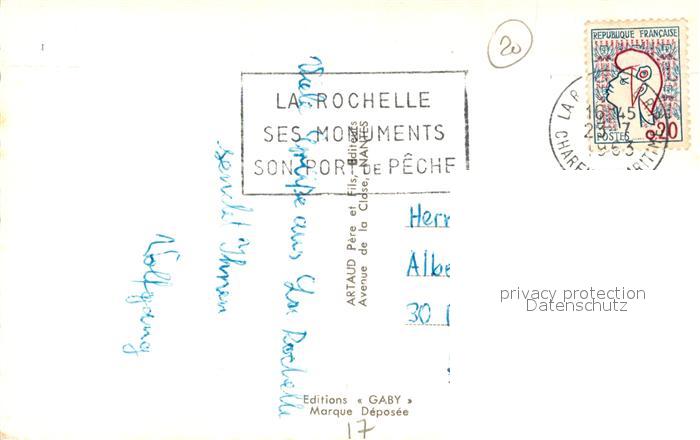 20
RÉPUBLIQUE FRANÇAISE
POSTES 0,20
LA R
16H45
23-7
1963
CHARENTE MARITIME
LA ROCHELLE
SES MONUMENTS
SON PORT DE PÊCHE
Viele Grüße aus La Rochelle
sendet Ihnen
Wolfgang
ARTAUD Père et Fils, Editeurs
Avenue de la Close, NANTES
Herr
Albe
30
privacy protection
Datenschutz
Editions « GABY »
Marque Déposée
17